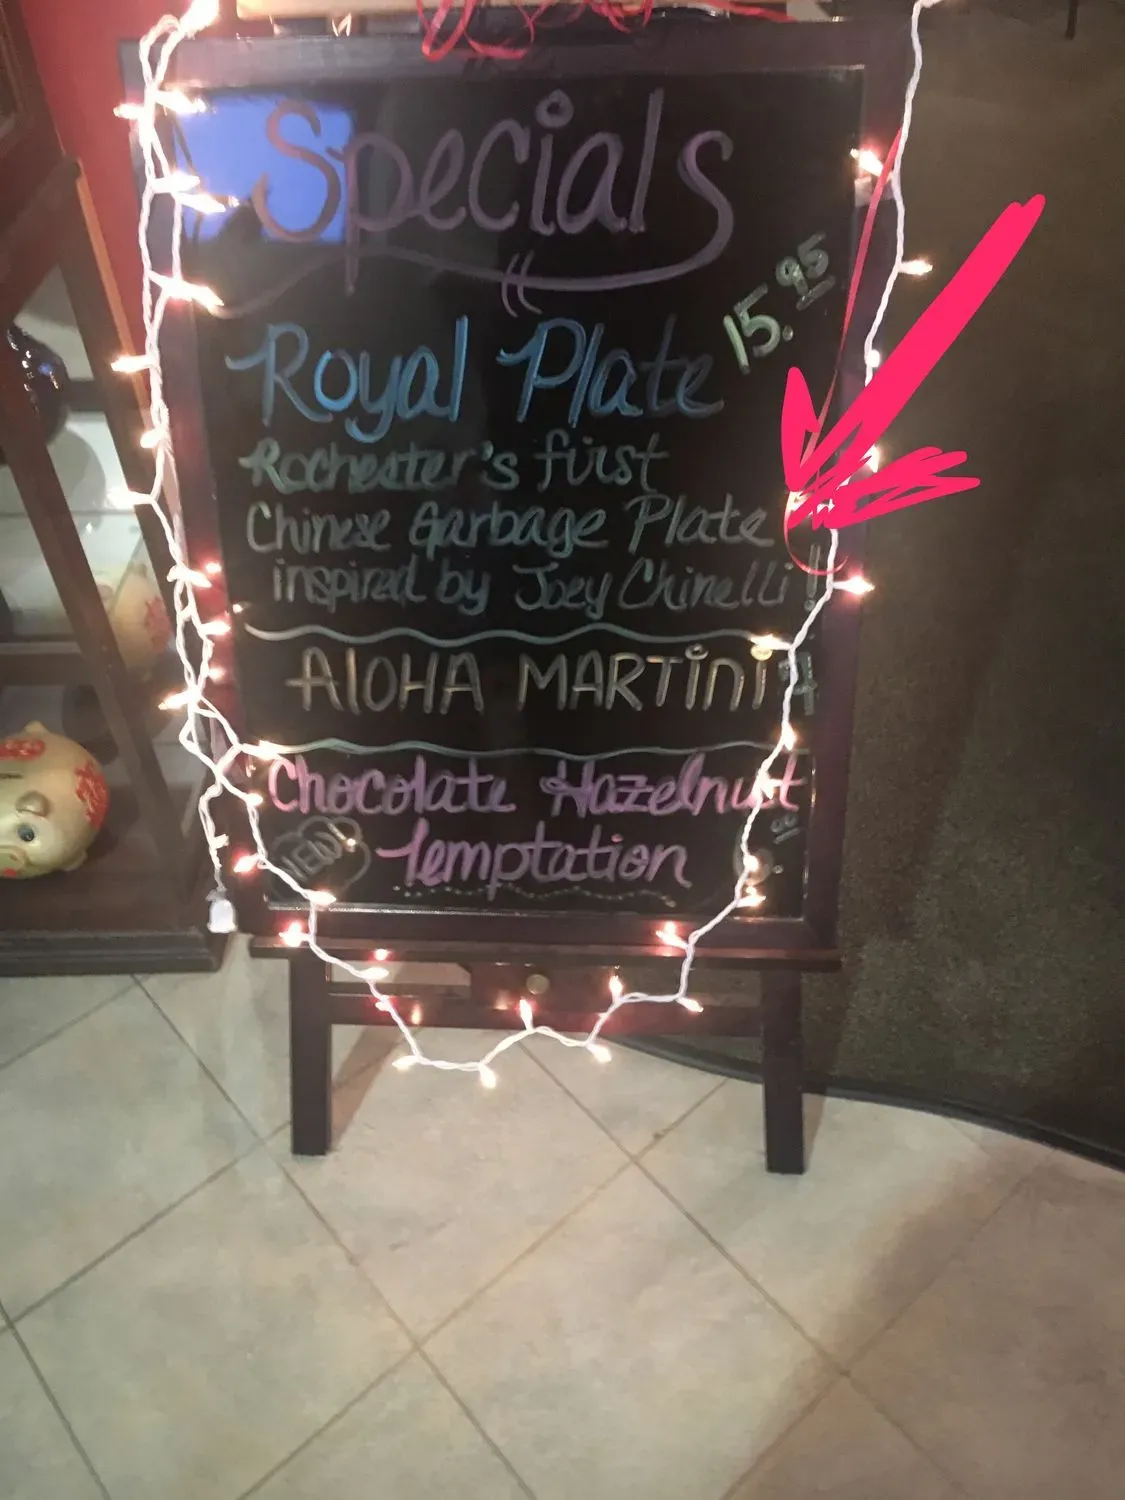 Specials
15.95
Royal Plate
Rochester's first
Chinese Garbage Plate
inspired by Joey Chinelli!
ALOHA MARTini
Chocolate Hazelnut
NEW! Temptation